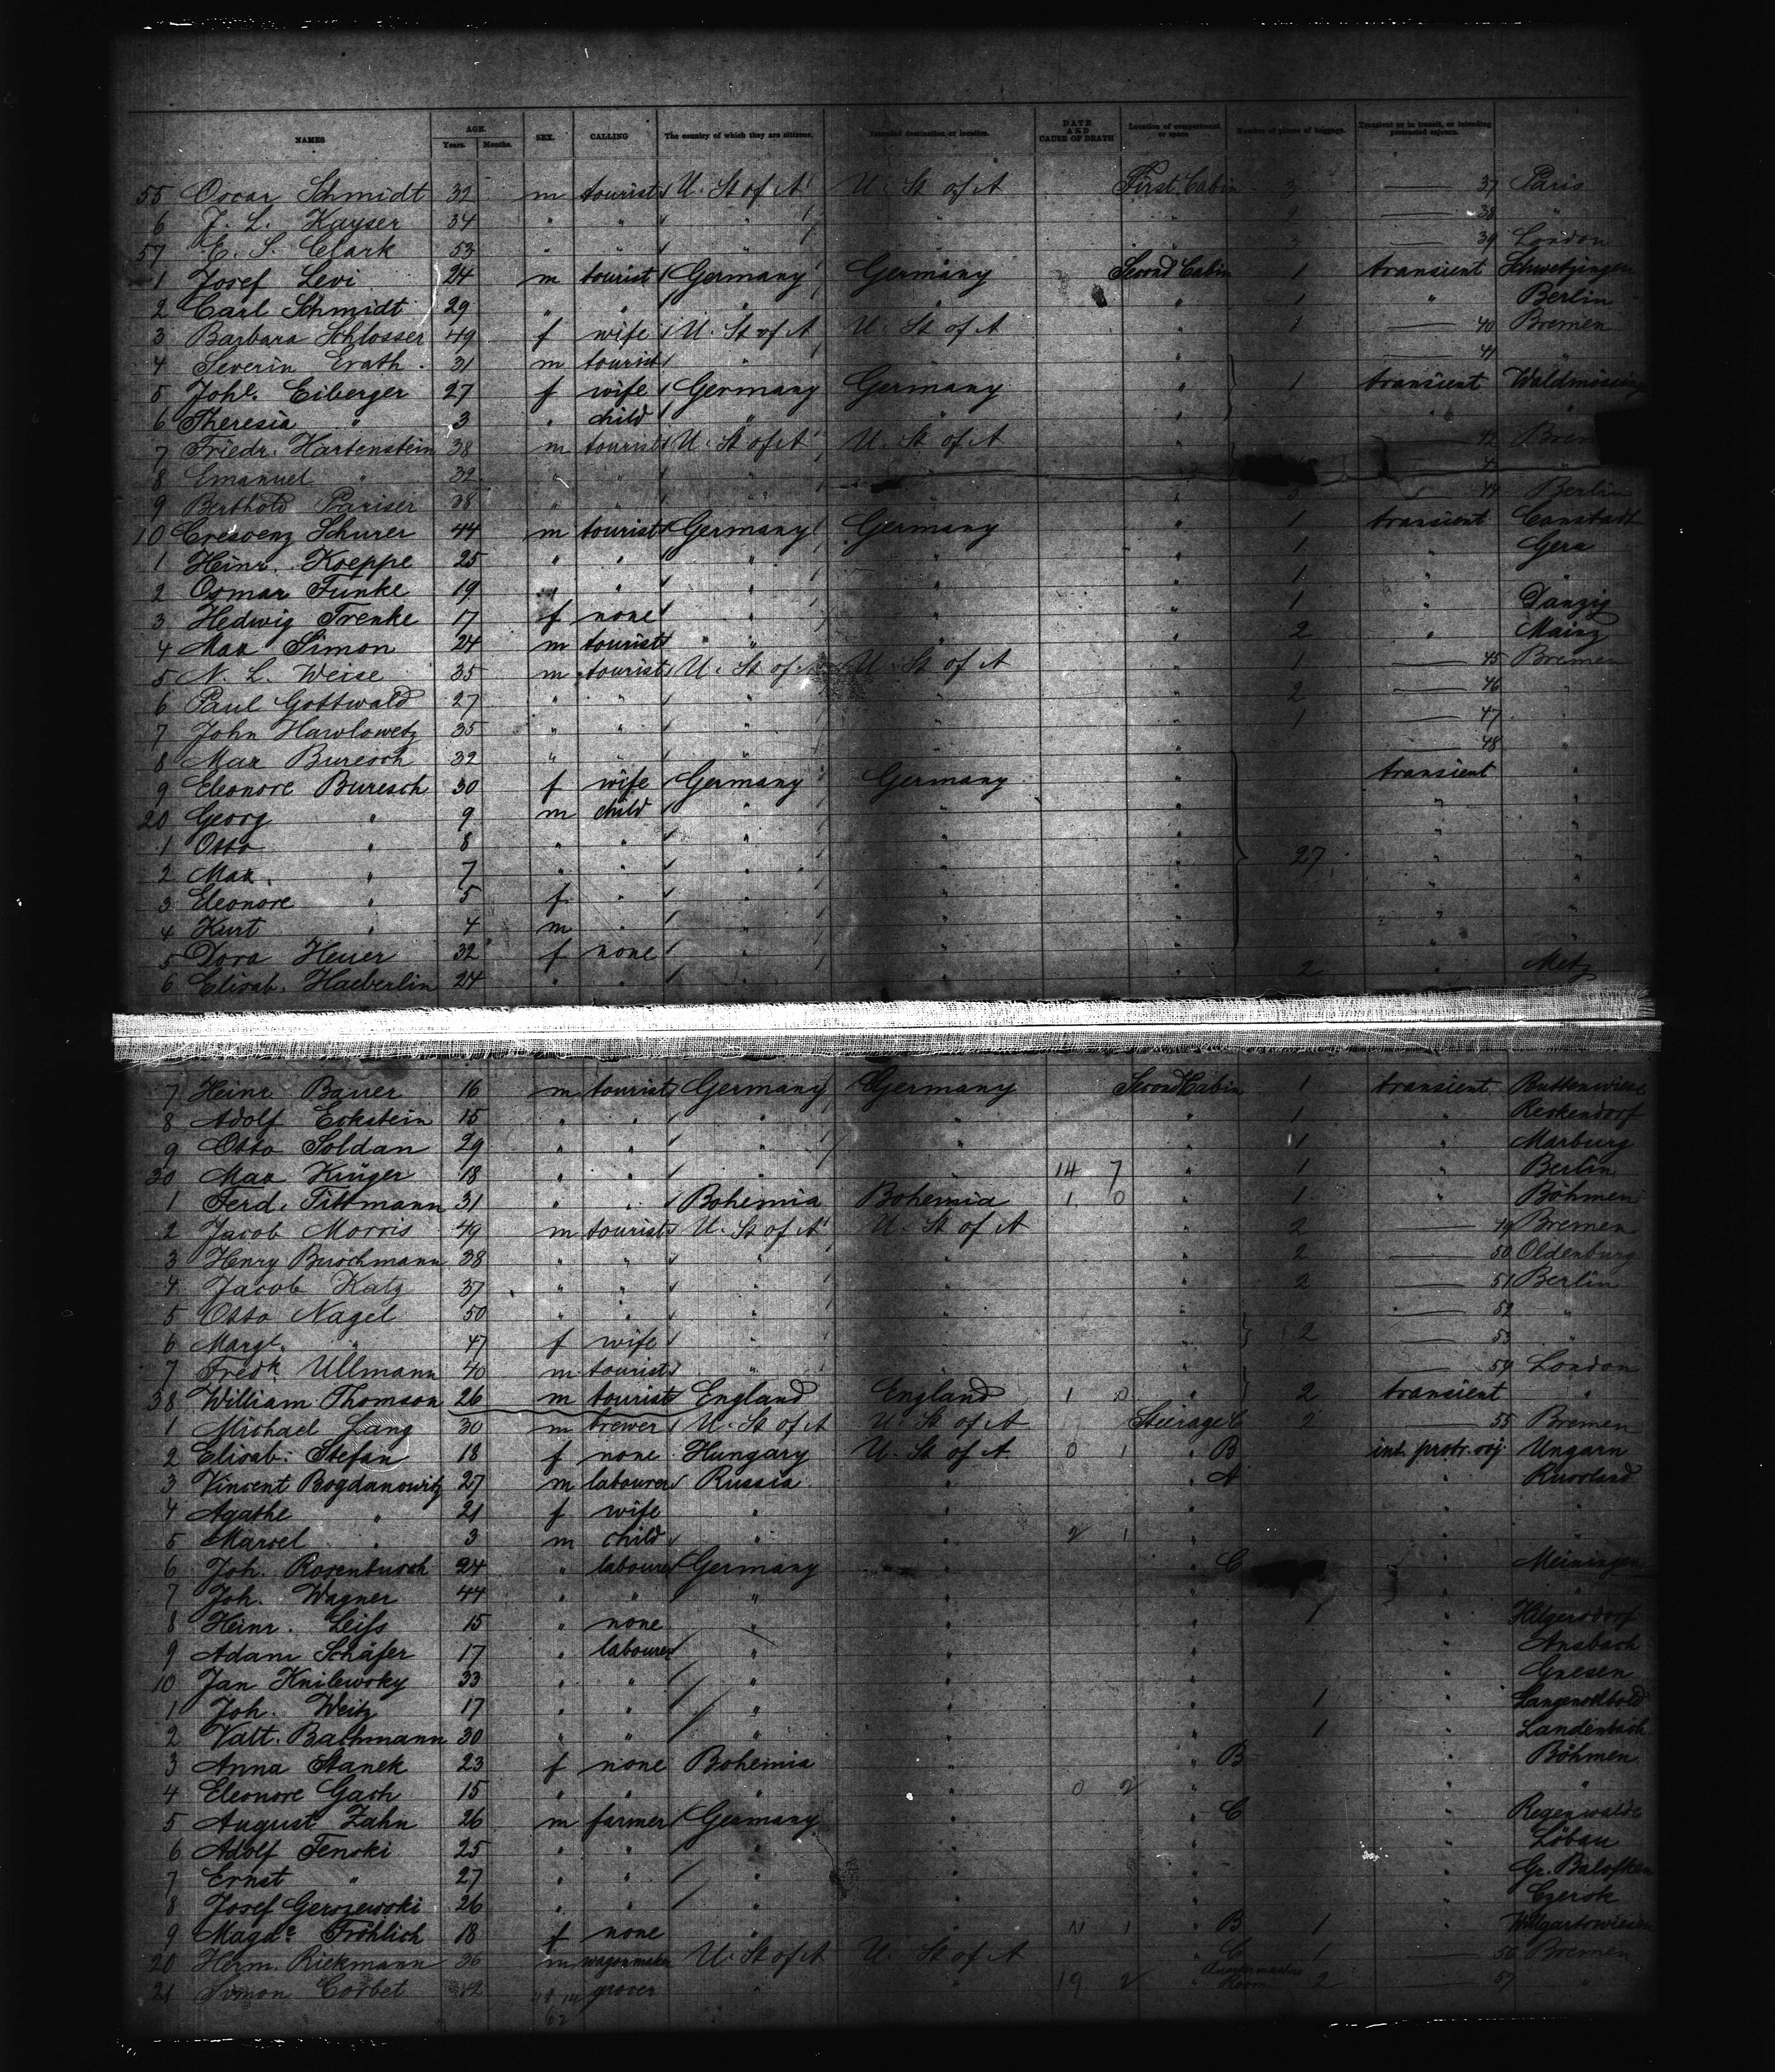 NAMES AGE. Years. Months. SEX. CALLING The country of which they are citizens. Intended destination or location. DATE AND CAUSE OF DEATH Location of compartment or space Number of pieces of baggage. Transient or in transit, or intending protracted sojourn.
55 Oscar Schmidt 32 m tourist U. St of A U. St of A First Cabin 3 — 37 Paris
6 J. L. Kayser 34 " " " " " 2 — 38 "
57 C. S. Clark 53 " " " " " 3 — 39 London
1 Josef Levi 24 m tourist Germany Germany Second Cabin 1 transient Schwetzingen
2 Carl Schmidt 29 " " " " " 1 " Berlin
3 Barbara Schlosser 49 f wife U. St of A U. St of A " 1 — 40 Bremen
4 Severin Erath 31 m tourist " " " — 41 "
5 Johe. Eiberger 27 f wife Germany Germany " 1 transient
6 Theresia " 3 " child " " " " "
7 Friedr. Hartenstein 38 m tourist U. St of A U. St of A " — 42 Brem
8 Emanuel " 32 " " " " "
9 Berthold Pariser 38 " " " " " 3 — 44 Berlin
10 Crescenz Schurer 44 m tourist Germany Germany " 1 transient Canstadt
1 Heinr. Koeppe 25 " " " " " 1 " Gera
2 Osmar Funke 19 " " " " " 1 " "
3 Hedwig Frenke 17 f none " " " 1 " Danzig
4 Max Simon 24 m tourist " " " 2 " Mainz
5 N. L. Weise 35 m tourist U. St of A U. St of A " 1 — 45 Bremen
6 Paul Gottwald 27 " " " " " 2 — 46 "
7 John Hawlowetz 35 " " " " " 1 — 47 "
8 Max Buresch 32 " " " " " — 48 "
9 Eleonore Buresch 30 f wife Germany Germany " transient "
20 Georg " 9 m child " " " " "
1 Otto " 8 " " " " " " "
2 Max " 7 " " " " " 27 " "
3 Eleonore " 5 f " " " " " "
4 Kurt " 4 m " " " " " "
5 Dora Heuer 32 f none " " " " "
6 Elisab. Haeberlin 24 " " " " " 2 " Metz
7 Heinr Bauer 16 m tourist Germany Germany Second Cabin 1 transient Buttenwiese
8 Adolf Eckstein 15 " " " " " 1 " Reckendorf
9 Otto Soldan 29 " " " " " 1 " Marburg
30 Max Krüger 18 " " " " 14 7 " 1 " Berlin
1 Ferd. Tittmann 31 " " Bohemia Bohemia 1 0 " 1 " Böhmen
2 Jacob Morris 49 m tourist U. St of A U. St of A " 2 — 49 Bremen
3 Henry Buschmann 38 " " " " " 2 — 50 Oldenburg
4 Jacob Katz 37 " " " " " 2 — 51 Berlin
5 Otto Nagel 50 " " " " " — 52 "
6 Marge. " 47 f wife " " " 2 — 53 "
7 Fredk. Ullmann 40 m tourist " " " — 54 London
38 William Thomson 26 m tourist England England 1 0 " 2 transient "
1 Michael Lang 30 m brewer U. St of A U. St of A Steerage C 2 — 55 Bremen
2 Elisab: Stefan 18 f none Hungary U. St of A 0 1 " B int. protr. soj. Ungarn
3 Vincent Bogdanowitz 27 m labourer Russia " " A " Russland
4 Agathe " 21 f wife " " " " "
5 Marcel " 3 m child " " 2 1 " " "
6 Joh. Rosenbusch 24 " labourer Germany " " C " Meiningen
7 Joh. Wagner 44 " " " " " " "
8 Heinr. Leiss 15 " none " " " 1 " Hilgersdorf
9 Adam Schäfer 17 " labourer " " " " Ansbach
10 Jan Knilewsky 33 " " " " " " Gnesen
1 Joh. Weitz 17 " " " " " 1 " Langenselbold
2 Valt. Bathmann 30 " " " " " 1 " Landenbach
3 Anna Stanek 23 f none Bohemia " " B " Böhmen
4 Eleonore Gach 15 " " " " 0 2 " " "
5 August Zahn 26 m farmer Germany " " C " Regenwalde
6 Adolf Tenski 25 " " " " " " Löbau
7 Ernst " 27 " " " " " " Gr.
8 Josef Gerszewski 26 " " " " " " Czersk
9 Magde. Fröhlich 18 f none " " 11 1 " B 1 "
20 Herm. Riekmann 36 m wagonmaker U. St of A U. St of A " C 1 — 56 Bremen
21 Simon Corbet 42 grocer " " 19 2 " Room 2 — 57 "
62